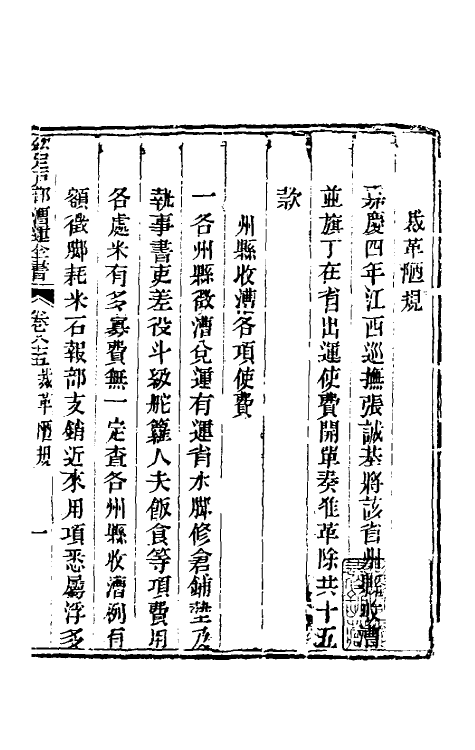 裁革陋規
嘉慶四年江西巡撫張誠基將該省州縣收漕
並旗丁在省出運使費開單奏准革除共十五
款
州縣收漕各項使費
一各州縣徵漕兌運有運省水脚修倉鋪墊及
執事書吏差役斗級舵籮人夫飯食等項費用
各處米有多寡費無一定查各州縣收漕例有
額徵脚耗米石報部支銷近來用項悉屬浮多
欽定戶部漕運全書
卷八十五裁革陋規
一